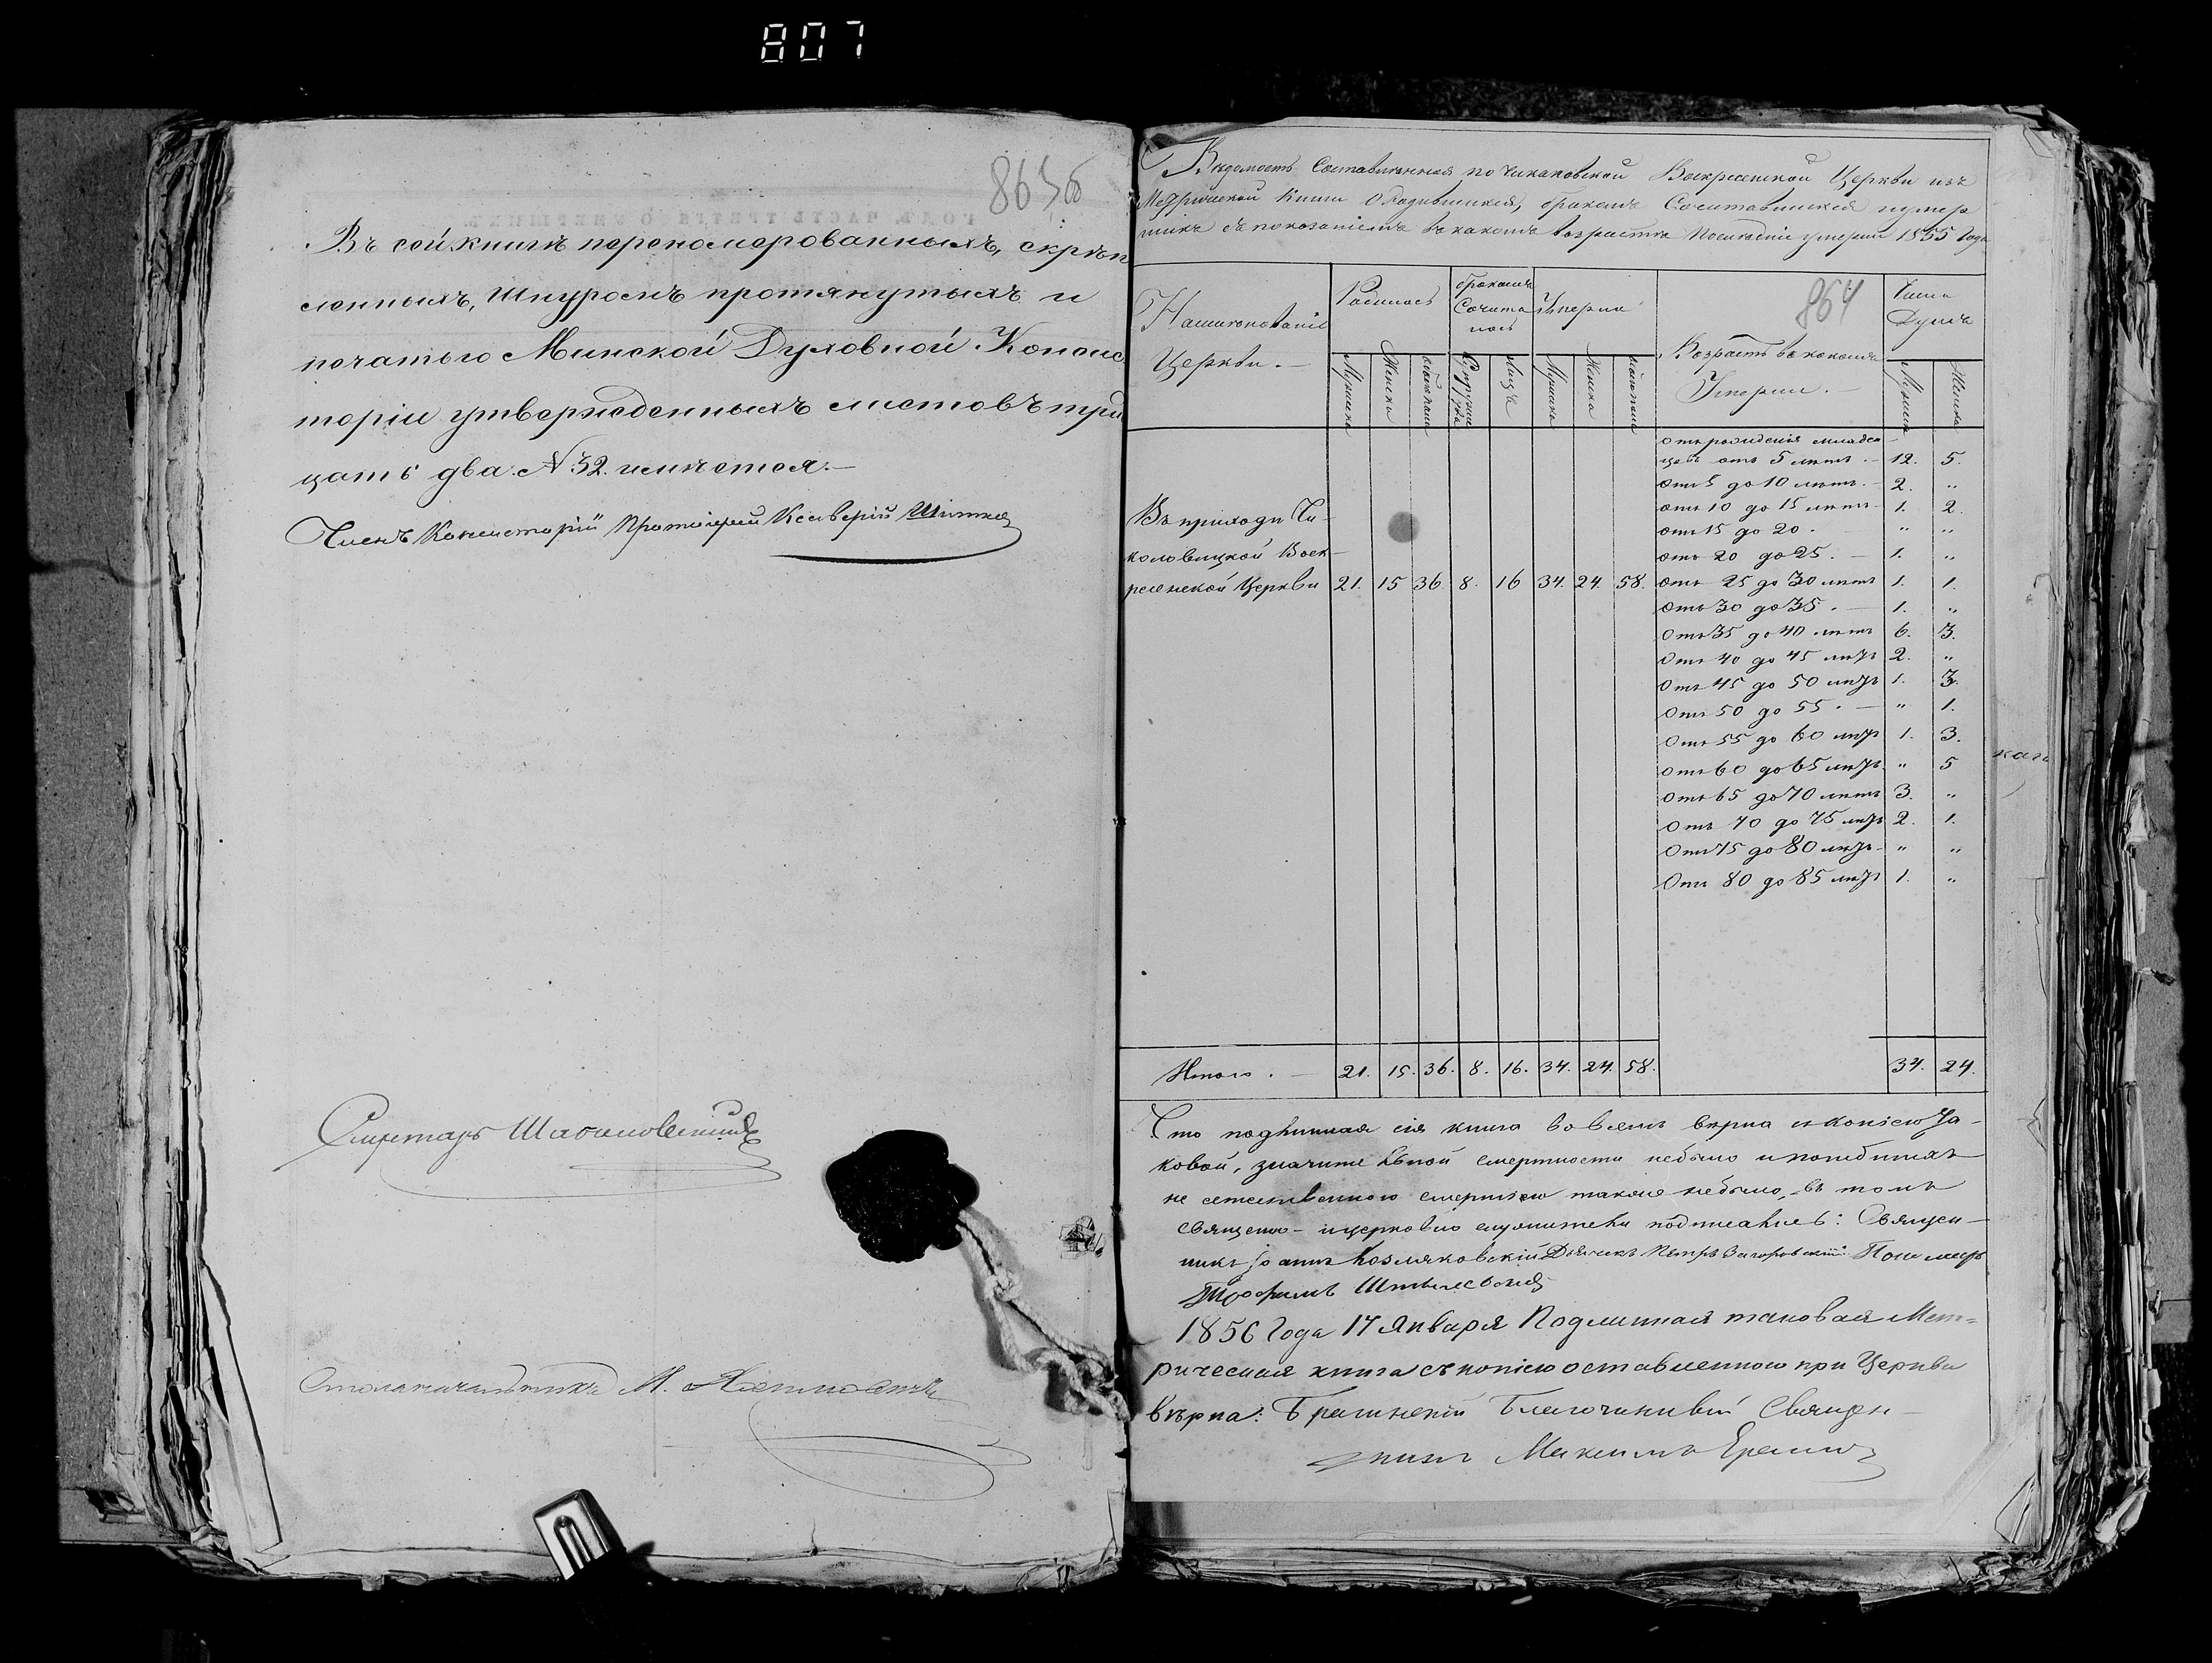 807
863об
Въ сей книгѣ перономерованныхъ, скрѣп
ленныхъ, шнуромъ протянутыхъ и
печатью Минской Духовной Консис
торіи утвержденныхъ листовъ трид
цать два. № 32. имѣется. —
Членъ Консисторіи Протоіерей Ксаверій
Секретарь
Столоначальникъ М.
Вѣдомость Составленная по Чикаловской Воскресенской Церкви изъ
Метрической Книги О Родившихся, бракомъ Сочитавшихся и умер
шихъ съ показаніемъ въ какомъ возрастѣ Послѣдніе умерли 1855 Года
864
Наименованіе Церкви. —
Родилось
Бракомъ Сочита лось
Умерли
Возрастъ въ какомъ Умерли. —
Число Душъ
Мужска Женска обоего пола Супруж Лицъ Мужска Женска обоего пола Мужска Женска
отъ рожденія младен-
цовъ отъ 5 лѣтъ. — 12. 5.
отъ 5 до 10 лѣтъ. — 2. "
отъ 10 до 15 лѣтъ. 1. 2.
отъ 15 до 20. " "
отъ 20 до 25. — 1. "
Въ приходѣ Чи-
коловицкой Воск-
ресенской Церкви 21. 15 36. 8. 16 34. 24. 58.
отъ 25 до 30 лѣтъ 1. 1.
отъ 30 до 35. — 1. "
отъ 35 до 40 лѣтъ 6. 3.
отъ 40 до 45 лѣтъ 2. "
отъ 45 до 50 лѣтъ 1. 3.
отъ 50 до 55. — " 1.
отъ 55 до 60 лѣтъ 1. 3.
отъ 60 до 65 лѣтъ. " 5
отъ 65 до 70 лѣтъ 3. "
отъ 70 до 75 лѣтъ 2. 1.
отъ 75 до 80 лѣтъ. " "
отъ 80 до 85 лѣтъ 1. "
Итого. — 21. 15. 36. 8. 16. 34. 24. 58. 34. 24.
Что подлинная сія книга во всемъ вѣрна съ копіею та-
ковой, значительной смертности небыло и погибшихъ
не естественною смертію также небыло, въ томъ
священно-церковно служители подписались: Священ-
никъ Іоаннъ Козляковскій Дьячекъ Петръ Загоровскій Пономарь
Трофимъ
1856 Года 17 Января Подлинная таковая Мет=
рическая книга съ копіею оставленною при Церкви
вѣрна: Брагинскій Благочинный Священ-
никъ Максимъ Еремичъ